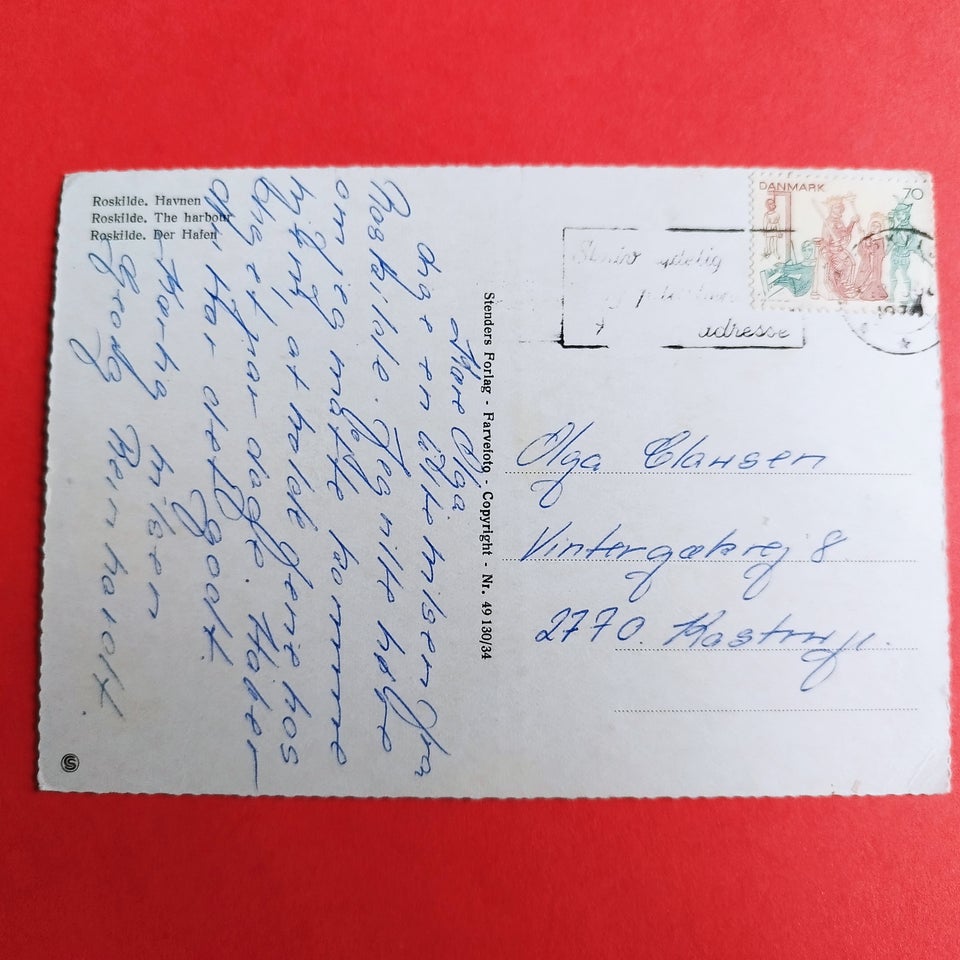 Roskilde. Havnen
Roskilde. The harbour
Roskilde. Der Hafen
Kære Olga.
dig en lille hilsen fra
Roskilde. Jeg ville høre
om jeg måtte komme
til at holde ferie hos
dig et par dage. Håber
du har det
godt.
Kærlig hilsen
Reinholdt.
Stenders Forlag - Farvefoto - Copyright - Nr. 49 130/34
DANMARK
70
Skriv tydelig
og
adresse
Olga Clausen
Vintergækvej 8
2770. Kastrup.
S